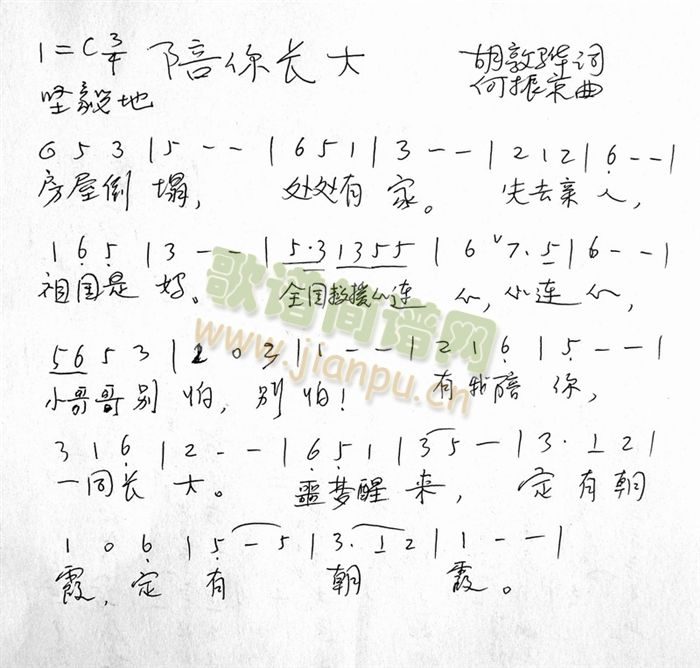 1=C 3/4 陪你长大 胡敦骅词
坚毅地 何振京曲
6 5 3 | 5 - - | 6 5 1 | 3 - - | 2 1 2 | 6 - - |
房屋倒塌， 处处有家。 失去亲人，
1 6 5 | 3 - - | 5·3 1355 | 6 ᵛ7·5 | 6 - - |
祖国是妈。 全国救援心连心，心连心，
歌谱简谱网
www.jianpu.cn
56 5 3 | 2 0 3 | 1 - - | 2 1 6 | 5 - - |
小哥哥别怕，别怕！ 有我陪你，
3 1 6 | 2 - - | 6 5 1 | 3 5 - | 3· 1 2 |
一同长大。 噩梦醒来， 定有朝
1 0 6 | 5 - 5 | 3· 1 2 | 1 - - |
霞，定有朝霞。